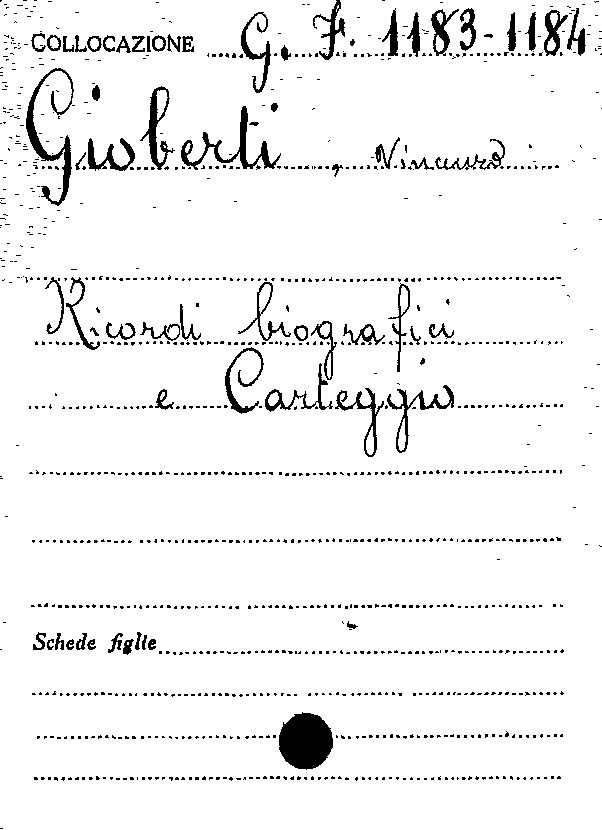 COLLOCAZIONE G. F. 1183-1184
Gioberti, Vincenzo
Ricordi biografici
e Carteggio
Schede figlie